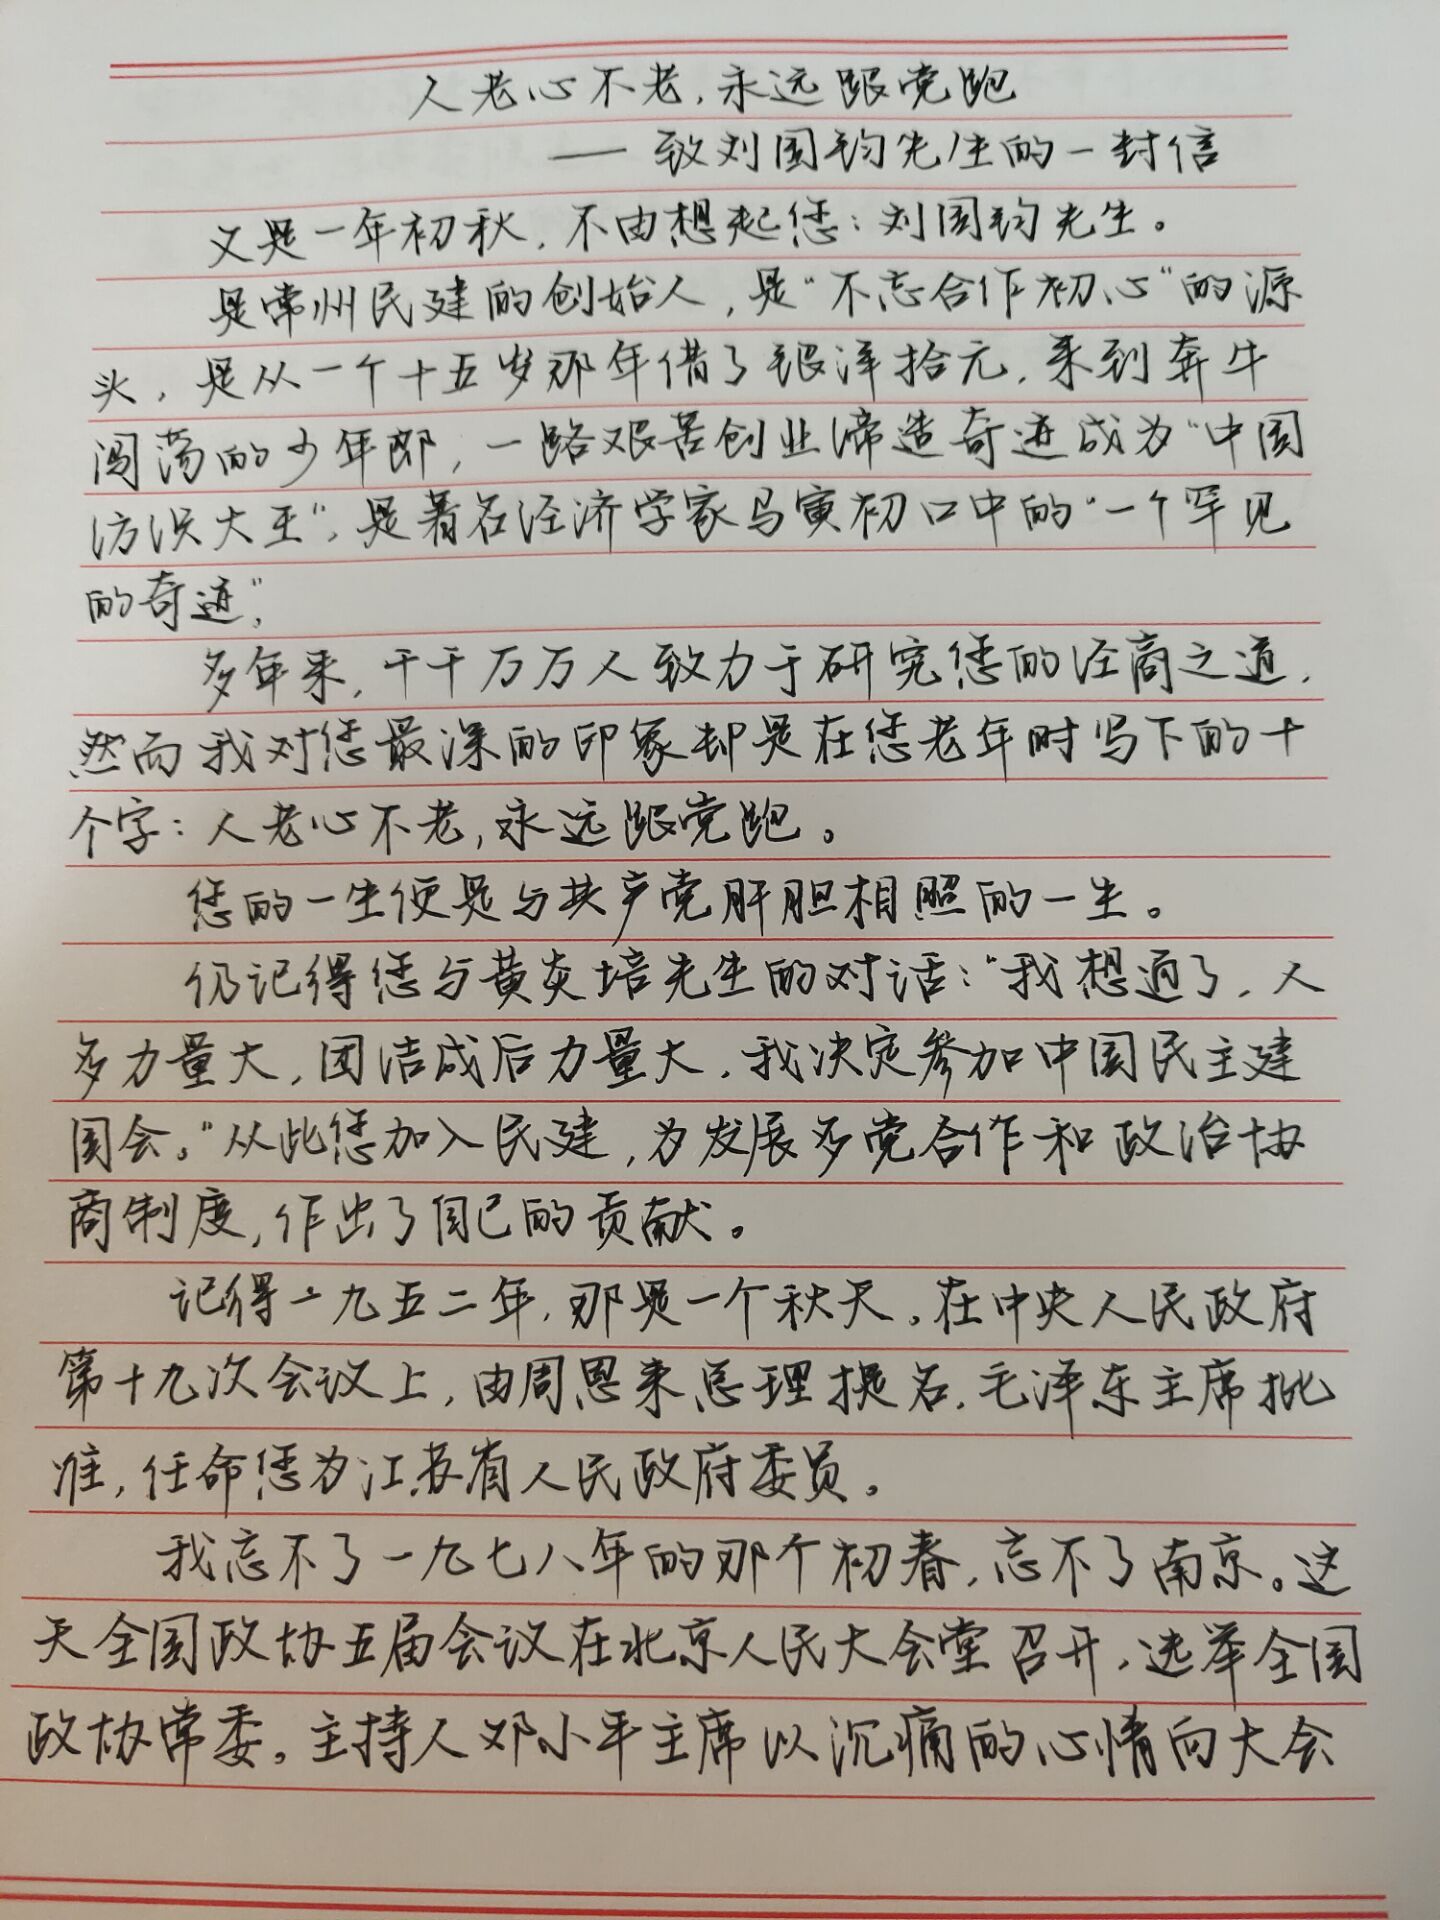 人老心不老，永远跟党跑
——致刘国钧先生的一封信
又是一年初秋，不由想起您：刘国钧先生。
是常州民建的创始人，是“不忘合作初心”的源
头，是从一个十五岁那年借了银洋拾元，来到奔牛
闯荡的少年郎，一路艰苦创业缔造奇迹成为“中国
纺织大王”，是著名经济学家马寅初口中的“一个罕见
的奇迹”。
多年来，千千万万人致力于研究您的经商之道，
然而我对您最深的印象却是在您老年时写下的十
个字：人老心不老，永远跟党跑。
您的一生便是与共产党肝胆相照的一生。
仍记得您与黄炎培先生的对话：“我想通了，人
多力量大，团结成后力量大，我决定参加中国民主建
国会。”从此您加入民建，为发展多党合作和政治协
商制度，作出了自己的贡献。
记得一九五二年，那是一个秋天，在中央人民政府
第十九次会议上，由周恩来总理提名，毛泽东主席批
准，任命您为江苏省人民政府委员。
我忘不了一九七八年的那个初春，忘不了南京。这
天全国政协五届会议在北京人民大会堂召开，选举全国
政协常委。主持人邓小平主席以沉痛的心情向大会